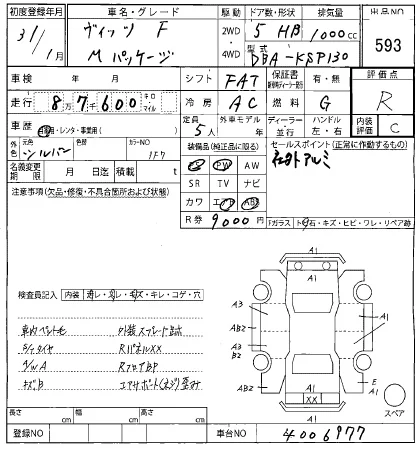 初度登録年月 車名・グレード 駆動 ドア数・形状 排気量 出品NO
31/1月 ヴィッツ F 2WD 5 HB 1000cc 593
Mパッケージ 4WD 型式 DBA-KSP130
車検 年 月 シフト FAT 保証書 有・無 評価点
走行 8万7千600 キロ・マイル 冷房 AC 燃料 G R
車歴 自家・レンタ・事業用( ) 定員 5人 外車モデル 年 ディーラー・並行 ハンドル 左・右 内装評価 C
元色 シルバー 色替 カラーNO 1F7 装備品(純正品に限る) セールスポイント(正常に作動するもの)
名義変更期限 月 日迄 積載 t PS PW AW 社外アルミ
注意事項(欠品・修復・不具合箇所および状態) SR TV ナビ
カワ エアB ABS
R券 9000円 Fガラス トビ石・キズ・ヒビ・ワレ・リペア跡
A1
A1
A3 A1
AB2
A3
B2
AB2 E
A1
A1
XX
A1
スペア
検査員記入 内装 ヨゴレ・スレ・キズ・キレ・コゲ・穴
車内ペット毛 外装スプレー跡
タイヤ RパネルXX
A/W A RフロアBP
キズB エアサポート(ネジ)歪み
長さ cm 幅 cm 高さ cm
登録NO 車台NO 4006977